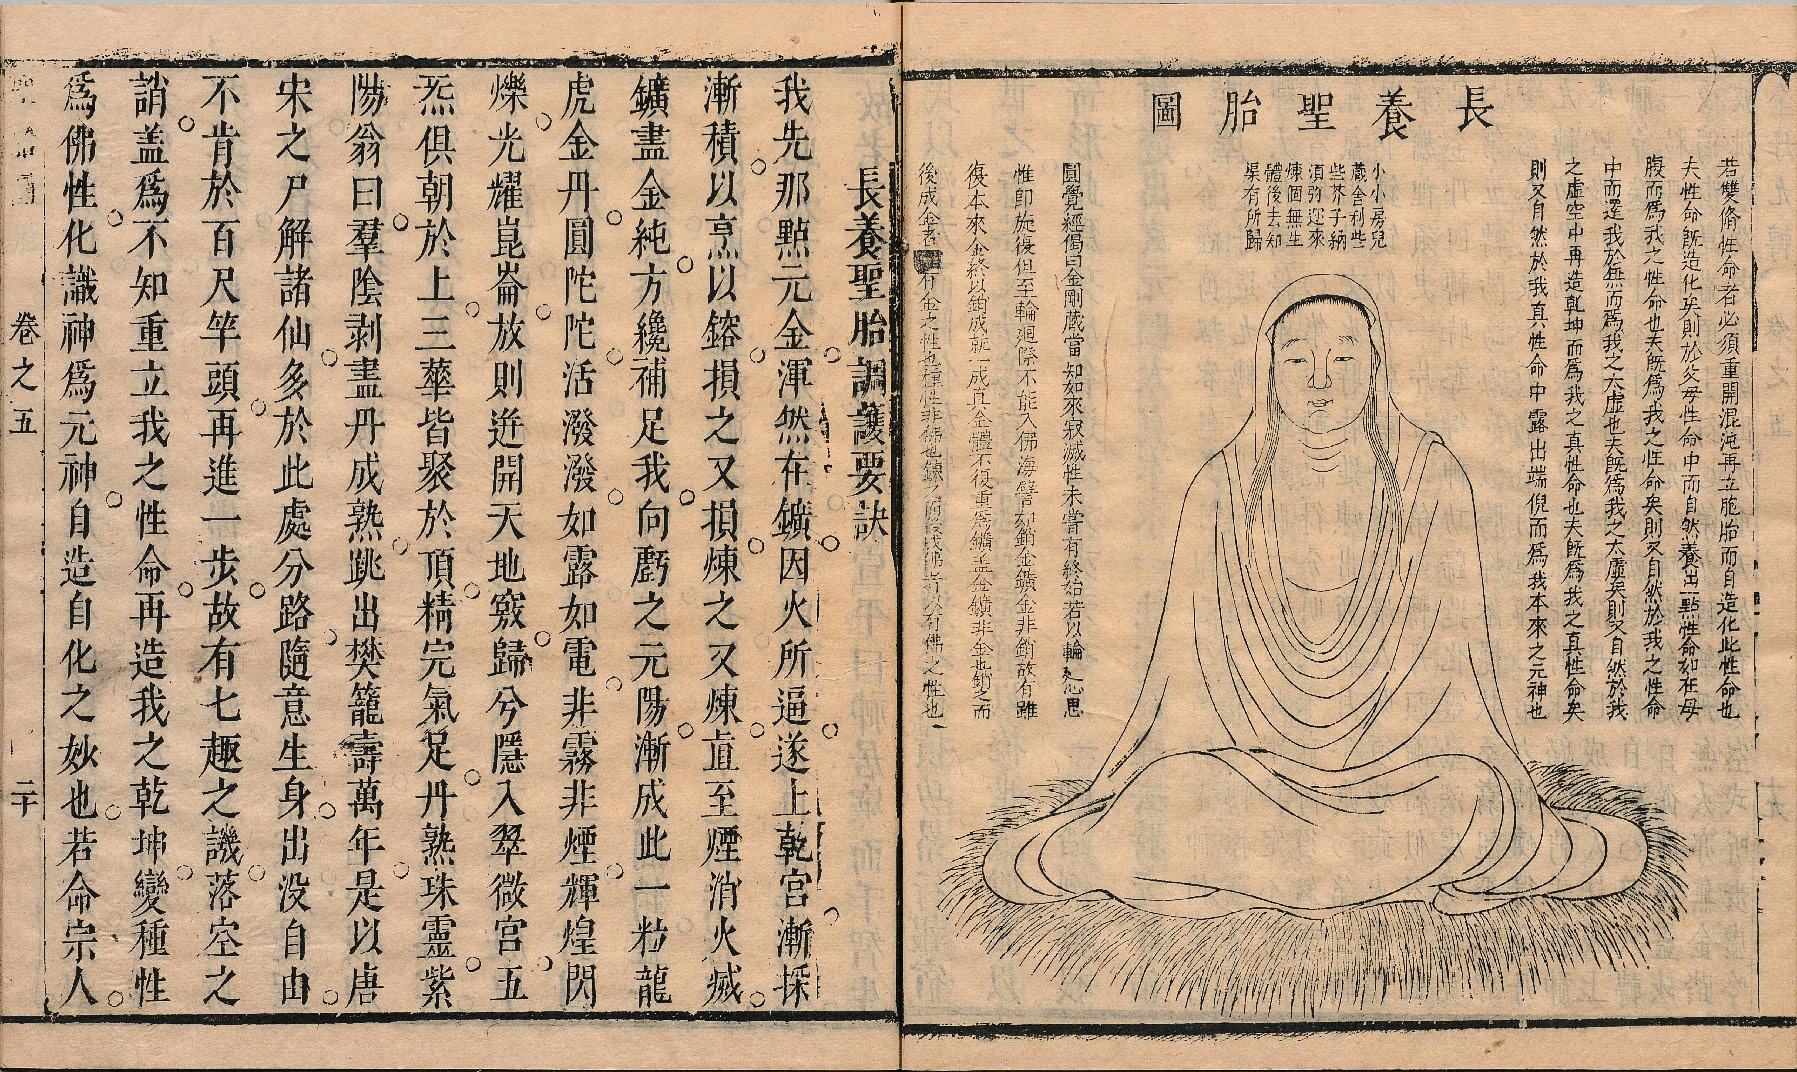 長養聖胎圖
若雙脩性命者必須重開混沌再立胞胎而自造化此性命也
夫性命旣造化矣則於父母性命中而自然養出一點性命如在母
腹而爲我之性命也夫旣爲我之性命矣則又自然於我之性命
中而還我於無而爲我之太虛也夫旣爲我之太虛矣則又自然於我
之虛空中再造乾坤而爲我之真性命也夫旣爲我之真性命矣
則又自然於我真性命中露出端倪而爲我本來之元神也
小小房兒
藏舍利些
些芥子納
須弥迎來
煉個無生
體後去知
渠有所歸
圓覺經偈曰金剛藏當知如來寂滅性未嘗有終始若以輪廻心思
惟卽旋復但至輪廻際不能入佛海譬如銷金鑛金非銷故有雖
復本來金終以銷成就一成真金體不復重爲鑛盖金鑛非金也銷之而
後成金者有金之性也種性非佛也鍊之而後成佛者以有佛之性也
長養聖胎調護要訣
我先那點元金渾然在鑛因火所逼遂上乾宮漸採
漸積以烹以鎔損之又損煉之又煉直至煙消火滅
鑛盡金純方纔補足我向虧之元陽漸成此一粒龍
虎金丹圓陀陀活潑潑如露如電非霧非煙輝煌閃
爍光耀崑崙放則迸開天地竅歸兮隱入翠微宮五
炁俱朝於上三華皆聚於頂精完氣足丹熟珠靈紫
陽翁曰羣陰剥盡丹成熟跳出樊籠壽萬年是以唐
宋之尸解諸仙多於此處分路隨意生身出没自由
不肯於百尺竿頭再進一步故有七趣之譏落空之
誚盖爲不知重立我之性命再造我之乾坤變種性
爲佛性化識神爲元神自造自化之妙也若命宗人
卷之五
二十